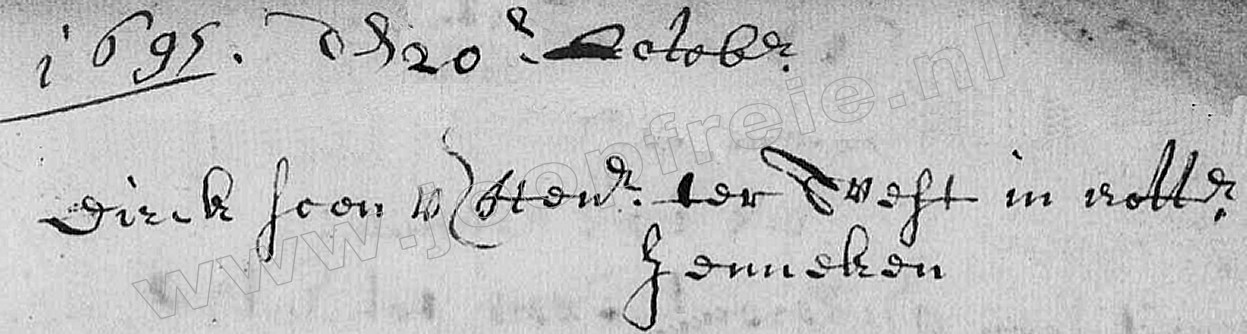 1695. den 20ᵉ: Octobr.
Dirck soon v Henr. ter West in nottr.
Jenneken
www.joopfreie.nl